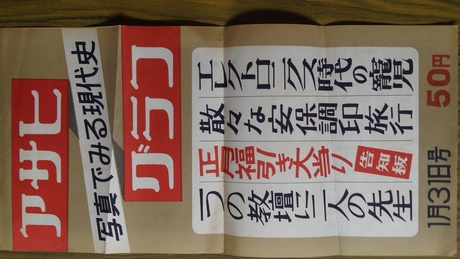 アサヒ
グラフ
写真でみる現代史
エレクトロニクス時代の寵児
散々な安保調印旅行
正月福引き大当り
告知板
一つの教壇に二人の先生
1月31日号
50円